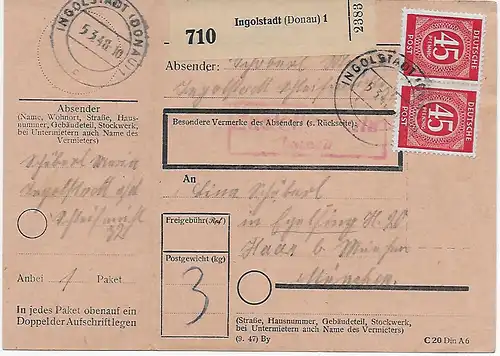 INGOLSTADT (DONAU) 1
5.3.48.18
c
710
Ingolstadt (Donau) 1
2383
45
DEUTSCHE
POST
45
DEUTSCHE
POST
INGOLSTADT (DO
Absender:
Ingolstadt
Absender
(Name, Wohnort, Straße, Haus-
nummer, Gebäudeteil, Stockwerk,
bei Untermietern auch Name des
Vermieters)
Ingolstadt
32
Anbei 1 Paket
In jedes Paket obenauf ein
Doppel der Aufschriftlegen
Besondere Vermerke des Absenders (s. Rückseite):
An
Lina
in Eglfing H. 20
Haar b. München
München
Freigebühr (Rpf)
Postgewicht (kg)
3
(Straße, Hausnummer, Gebäudeteil, Stockwerk,
bei Untermietern auch Name des Vermieters)
(9. 47) By
C 20 Din A6